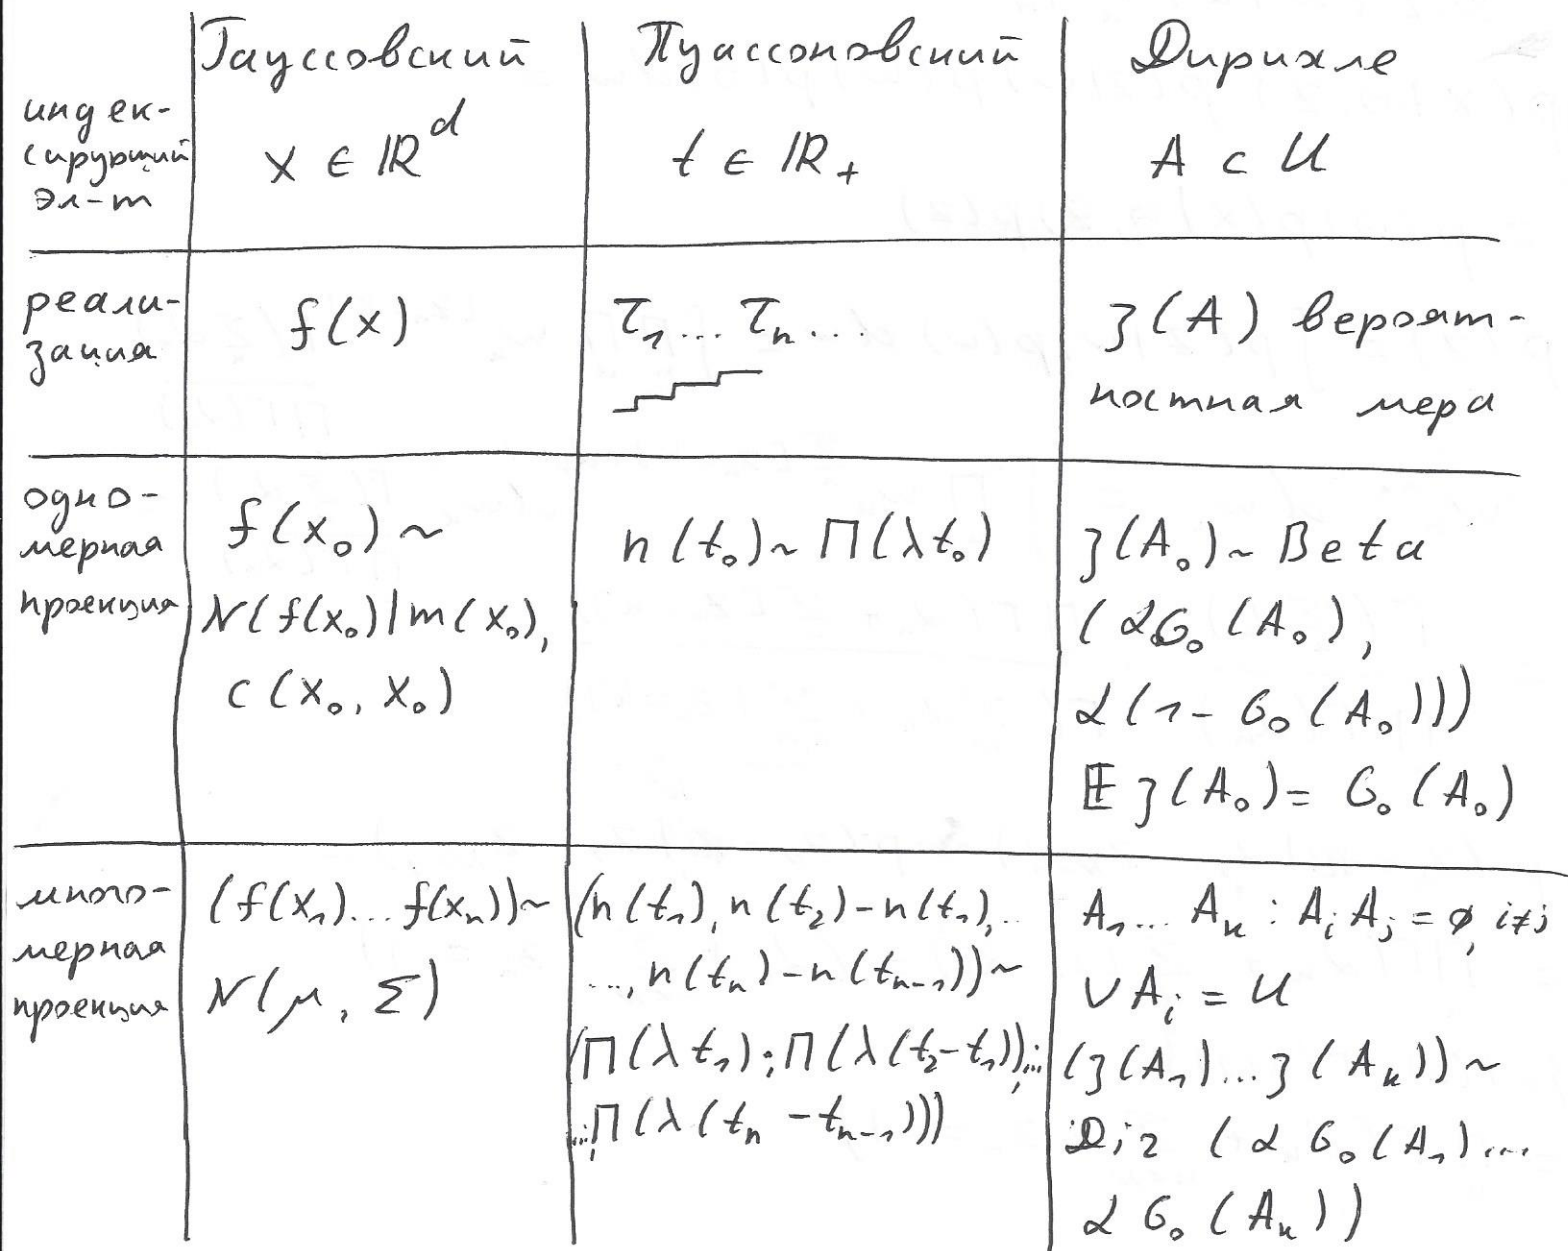 Гауссовский | Пуассоновский | Дирихле
индек-
сирующий
эл-т
x ∈ ℝ^d | t ∈ ℝ₊ | A ⊂ U
реали-
зация
f(x) | τ₁... τₙ... | ʒ(A) вероят-
ностная мера
одно-
мерная
проекция
f(x₀) ~
N(f(x₀)|m(x₀),
c(x₀, x₀)
n(t₀) ~ Π(λt₀)
ʒ(A₀) ~ Beta
(αG₀(A₀),
α(1 - G₀(A₀)))
𝔼 ʒ(A₀) = G₀(A₀)
много-
мерная
проекция
(f(x₁)... f(xₙ)) ~
N(μ, Σ)
(n(t₁), n(t₂) - n(t₁), ..
..., n(tₙ) - n(tₙ₋₁)) ~
(Π(λt₁); Π(λ(t₂ - t₁)); ...;
...; Π(λ(tₙ - tₙ₋₁)))
A₁... Aₖ : AᵢAⱼ = ∅, i≠j
∪Aᵢ = U
(ʒ(A₁)... ʒ(Aₖ)) ~
Dir (αG₀(A₁)...
αG₀(Aₖ))